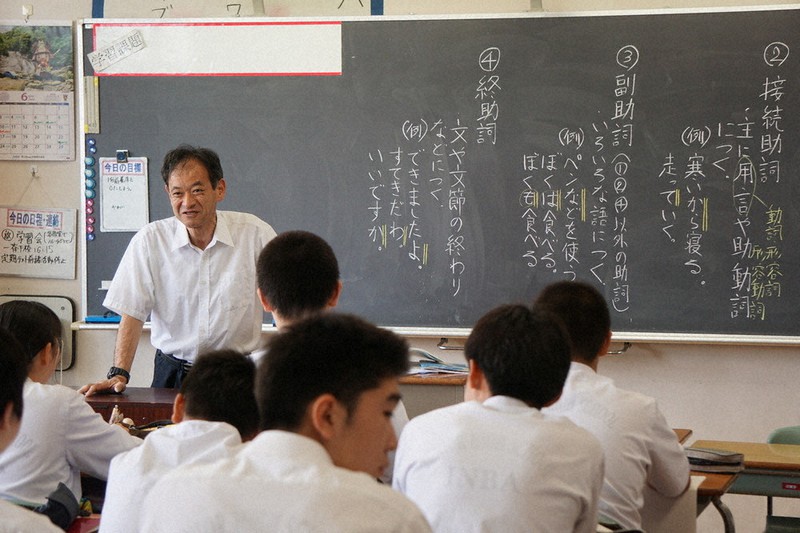 ② 接続助詞
…主に用言や助動詞
につく。
動詞
形容詞
形容動詞
(例) 寒いから寝る。
走っていく。
③ 副助詞 (①②④以外の助詞)
…いろいろな語につく。
(例) ペンなどを使う
ぼくは食べる。
ぼくも食べる
④ 終助詞
…文や文節の終わり
などにつく。
(例) できましたよ。
すてきだわ
いいですか。
学習課題
今日の目標
今日の日課・連絡
学習会
6
INBA